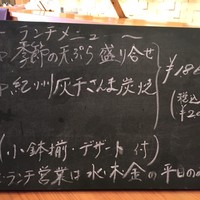 ランチメニュー
季節の天ぷら盛り合せ
紀州灰干さんま炭焼
(税込
(小鉢揃・デザート付)
ランチ営業は水・木・金の平日の